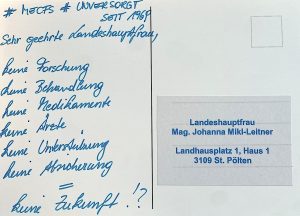 # MECFS # UNVERSORGT
SEIT 1969
Sehr geehrte Landeshauptfrau,
Keine Forschung
Keine Behandlung
Keine Medikamente
Keine Ärzte
Keine Unterstützung
Keine Absicherung
=
Keine Zukunft!?
Landeshauptfrau
Mag. Johanna Mikl-Leitner
Landhausplatz 1, Haus 1
3109 St. Pölten